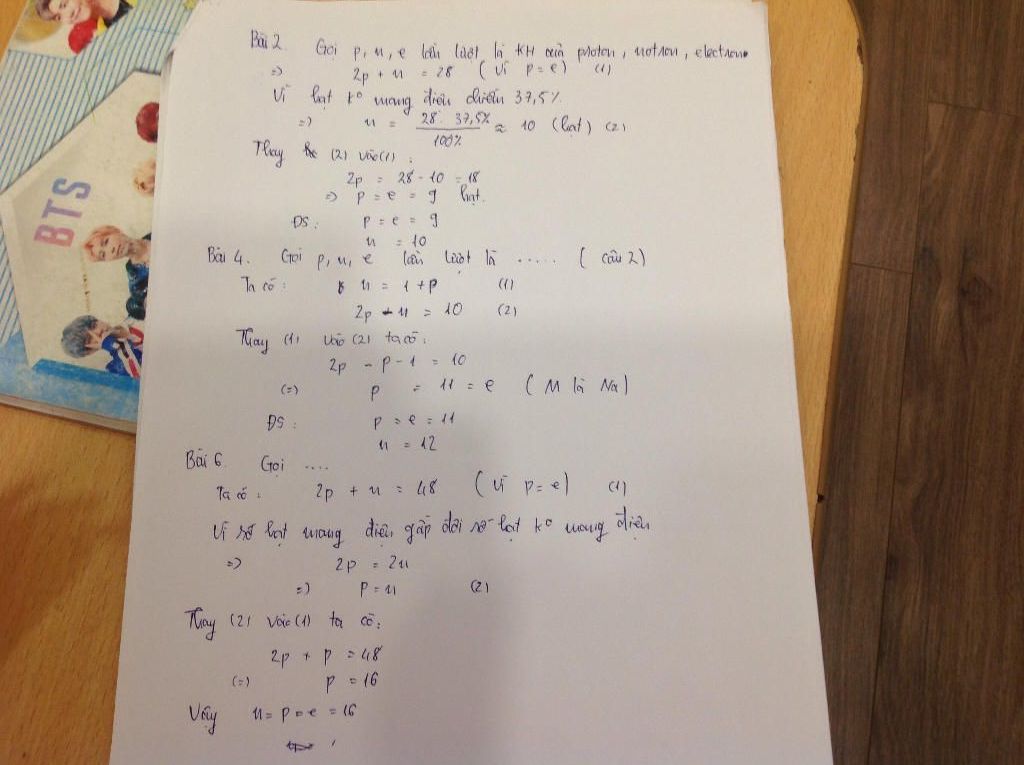 BTS
Bài 2. Gọi p, n, e lần lượt là KH của proton, notron, electron
=> 2p + n = 28 ( Vì p = e ) (1)
Vì hạt k° mang điện chiếm 37,5%.
=> n = 28 . 37,5% / 100% ≈ 10 (hạt) (2)
Thay (2) vào (1) :
2p = 28 - 10 = 18
=> p = e = 9 hạt.
ĐS : p = e = 9
n = 10
Bài 4. Gọi p, n, e lần lượt là ..... ( câu 2 )
Ta có : n = 1 + p (1)
2p - n = 10 (2)
Thay (1) vào (2) ta có :
2p - p - 1 = 10
(=) p = 11 = e ( M là Na )
ĐS : p = e = 11
n = 12
Bài 6. Gọi ....
Ta có : 2p + n = 48 ( Vì p = e ) (1)
Vì số hạt mang điện gấp đôi số hạt k° mang điện
=> 2p = 2n
=> p = n (2)
Thay (2) vào (1) ta có :
2p + p = 48
(=) p = 16
Vậy n = p = e = 16